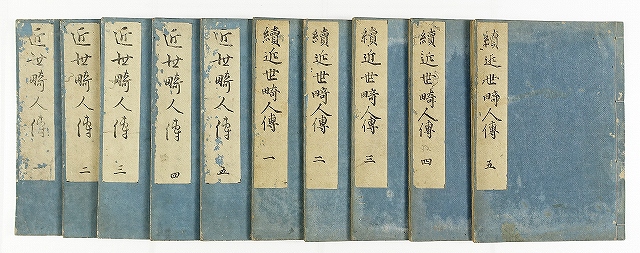 近世畸人傳 一
近世畸人傳 二
近世畸人傳 三
近世畸人傳 四
近世畸人傳 五
續近世畸人傳 一
續近世畸人傳 二
續近世畸人傳 三
續近世畸人傳 四
續近世畸人傳 五